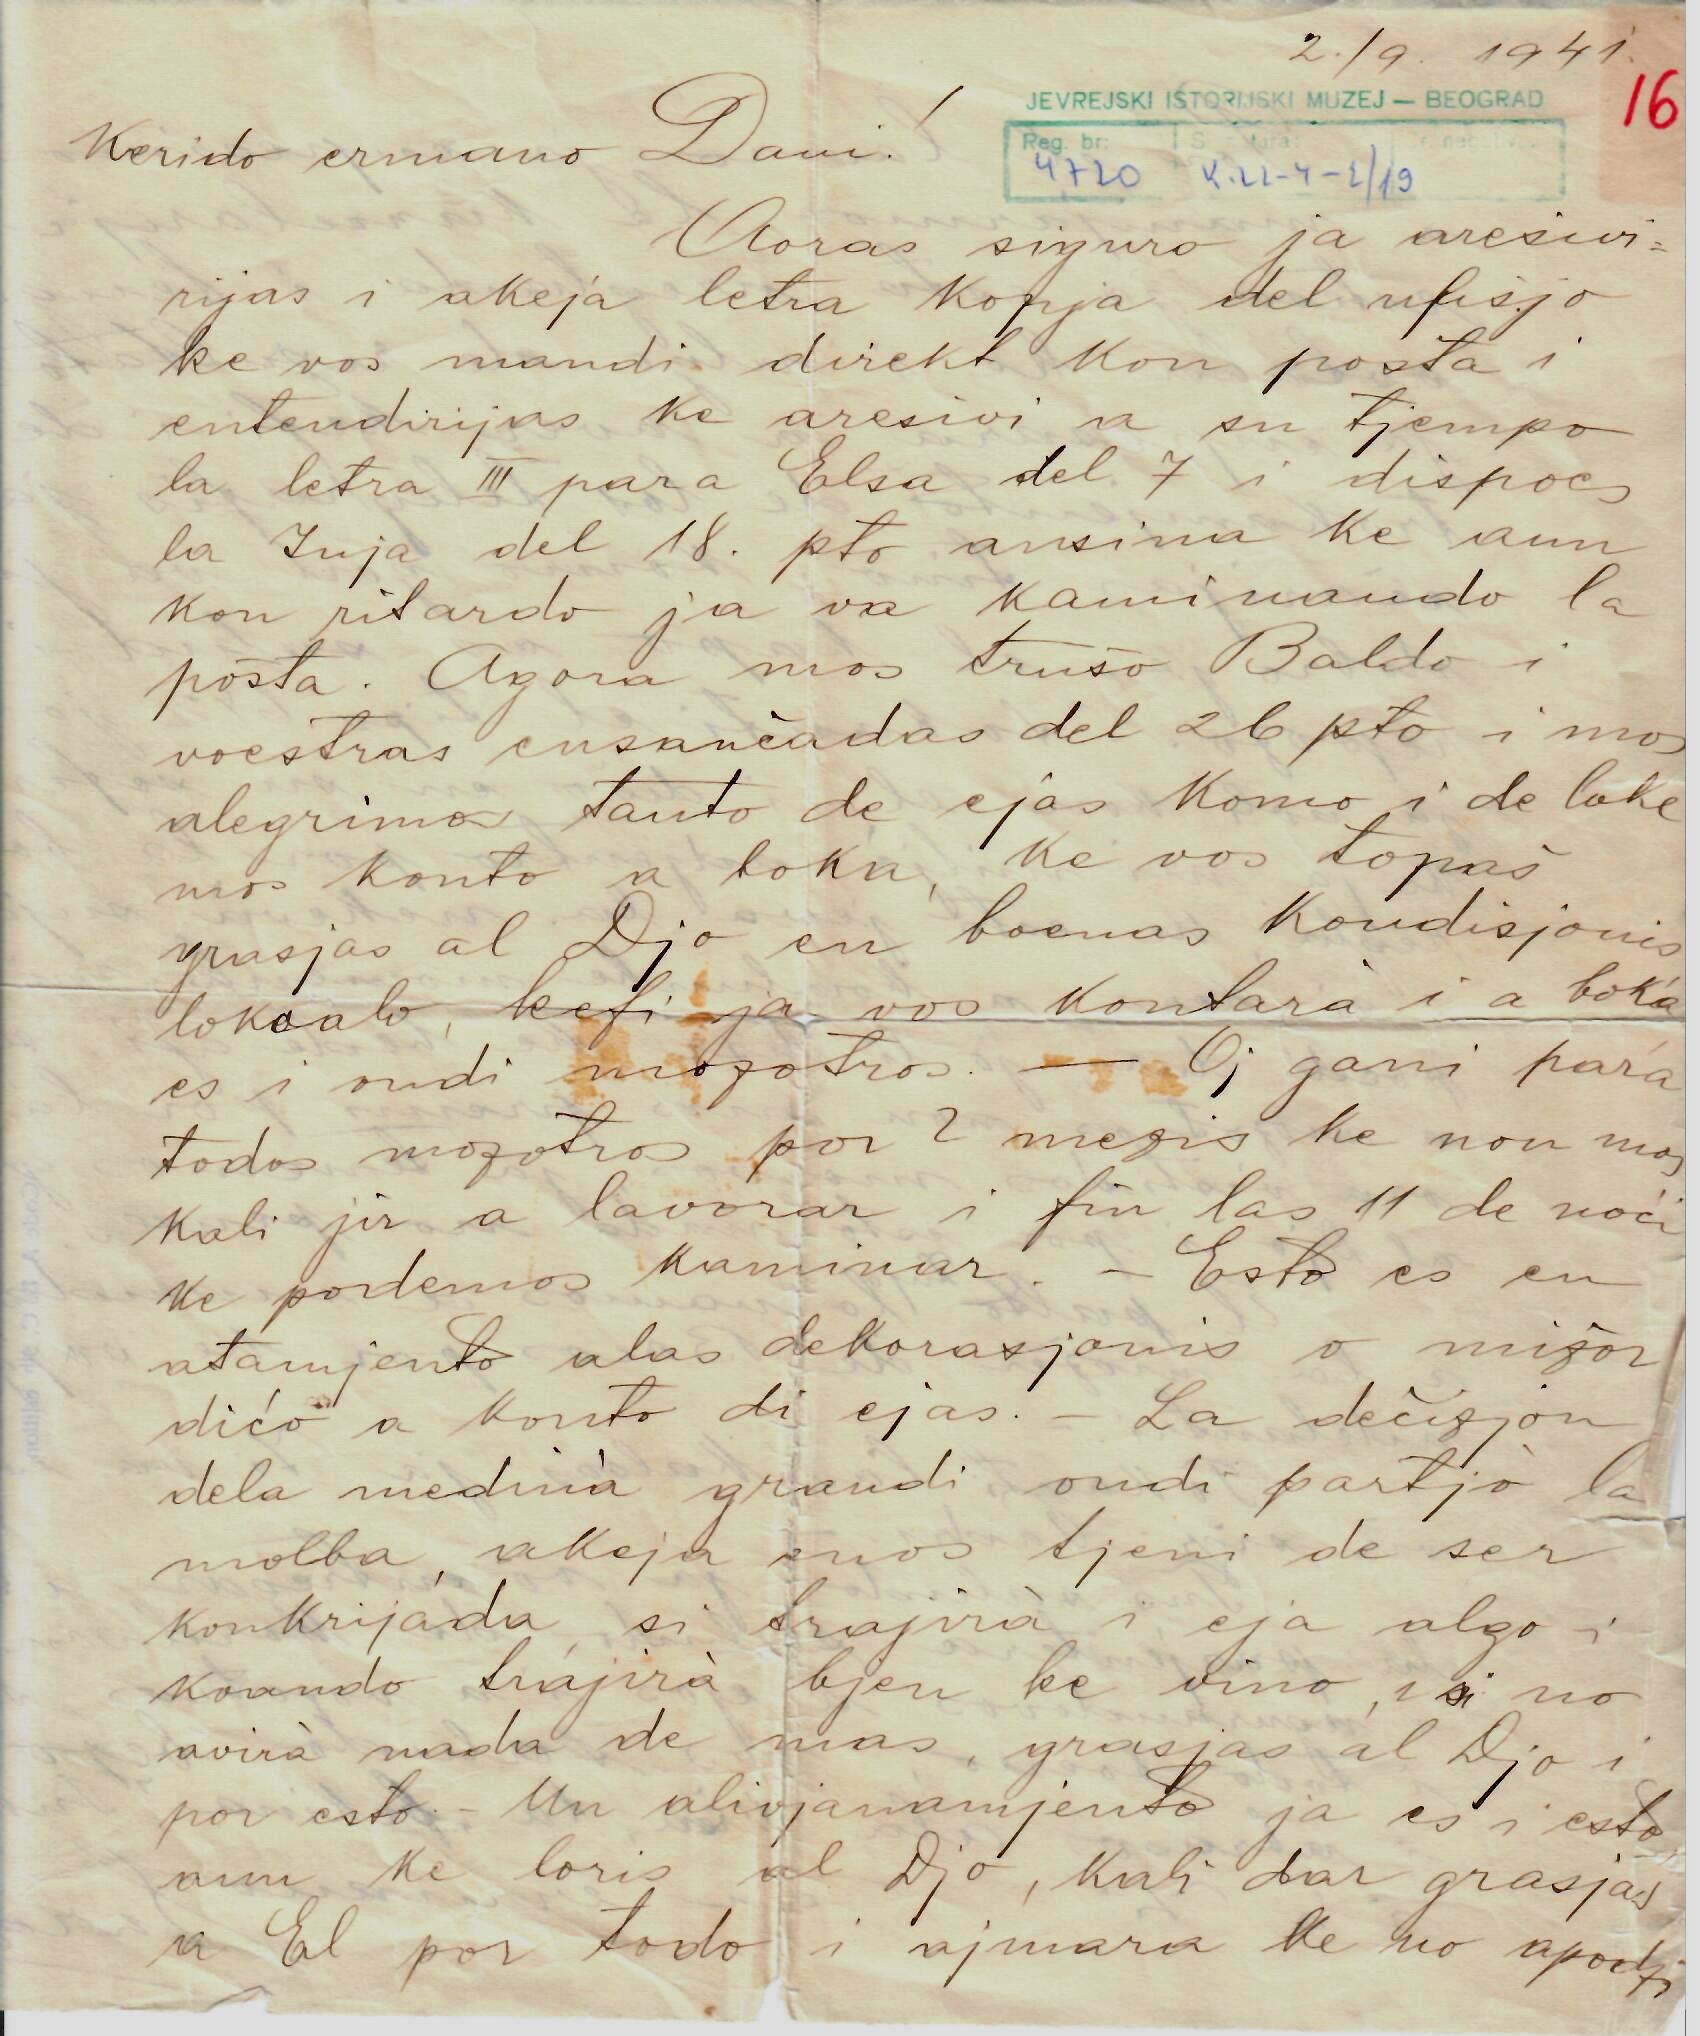 2./9. 1941.
16
JEVREJSKI ISTORIJSKI MUZEJ — BEOGRAD
Reg. br:
4720 K.22-4-2/19
Kerido ermano Davi!
Aoras siguro ja aresivi=
rijas i akeja letra kopja del ufisjo
ke vos mandi direkt kon pošta i
entendirijas ke aresivi a su tjempo
la letra III para Elsa del 7 i dispoes
la Tuja del 18. pto ansina ke aun
kon ritardo ja va kaminando la
pošta. Agora mos trušo Baldo i
voestras ensančadas del 26 pto i mos
alegrimos tanto de ejas komo i de loke
mos konto a boka, ke vos topaš
grasjas al Djo en boenas kondisjonis
lokualo, kefi ja vos kontarà i a boka
es i ondi mozotros. — Oj gani para
todos mozotros por 2 mezis ke non mos
kali jir a lavorar i fin las 11 de noči
ke podemos kaminar. — Esto es en
atamjento alas dekorasjonis o mižor
dićo a konto di ejas. — La dečizjon
dela medinà grandi ondi partjò la
molba, akeja mos tjeni de ser
konkrijada, si trajirà i eja algo i
koando trajirà bjen ke vino, i si no
avirà nada de mas, grasjas al Djo i
por esto. — Un alivjanamjento ja es i esto,
aun ke loris al Djo, kali dar grasjas
a El por todo i ajmara ke no apodzi